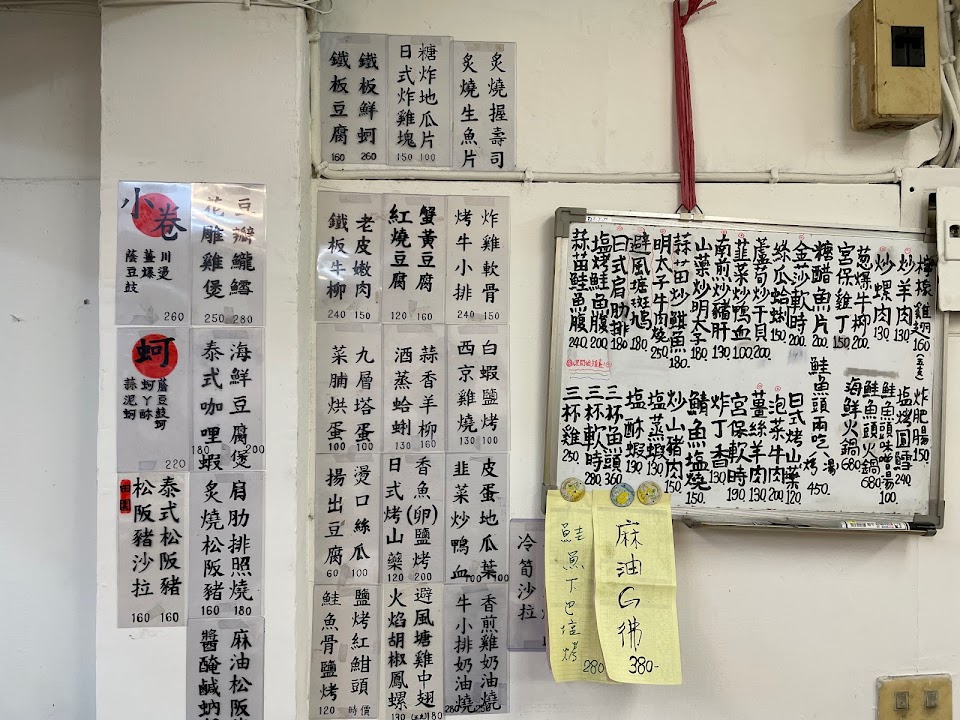 炙燒握壽司
炙燒生魚片
糖炸地瓜片 100
日式炸雞塊 150
鐵板鮮蚵 260
鐵板豆腐 160
豆瓣鱸鱈 280
花雕雞煲 250
小卷
川燙
薑爆
蔭豆豉
260
海鮮豆腐煲 200
泰式咖哩蝦 180
蚵
蔭豆豉蚵
蚵丫酥
蒜泥蚵
220
肩肋排照燒 180
炙燒松阪豬 160
泰式松阪豬 160
田園
松阪豬沙拉 160
麻油松阪
醬醃鹹蚋
炸雞軟骨 150
烤牛小排 240
蟹黃豆腐 160
紅燒豆腐 120
老皮嫩肉 150
鐵板牛柳 240
白蝦鹽烤 100
西京雞燒 130
蒜香羊柳 160
酒蒸蛤蜊 130
九層塔蛋 100
菜脯烘蛋 100
皮蛋地瓜葉 100
韭菜炒鴨血 100
香魚(卵)鹽烤 200
日式烤山藥 120
燙口絲瓜 100
揚出豆腐 60
香煎雞奶油燒 250
牛小排奶油燒 280
避風塘雞中翅 180
火焰胡椒鳳螺 130
鹽烤紅魽頭 時價
鮭魚骨鹽烤 120
冷筍沙拉
檸檬雞翅 160
炒羊肉 130
炒螺肉 130
蔥爆牛柳 200
宮保雞丁 150
糖醋魚片 200
金莎軟時 200
絲瓜蛤蜊 150
蘆荀炒干貝 200
韭菜炒鴨血 100
南煎炒豬肝 130
山藥炒明太子 180
蒜苗炒鯷魚 180
明太子牛肉燒 250
避風塘斑鳩 180
日式肩肋排 180
塩烤鮭魚腹 200
蒜苗鮭魚腹 240
炸肥腸 150
塩烤圓鱈 240
鮭魚味噌湯 100
鮭魚頭火鍋 680
海鮮火鍋 680
鮭魚頭兩吃 湯 烤 450
日式烤山藥 120
泡菜牛肉 200
薑絲羊肉 130
宮保軟時 190
炸丁香 130
鯖魚塩燒 150
炒山豬肉 150
塩蒸蝦 190
塩酥蝦 190
三杯魚頭 360
三杯軟時 280
三杯雞 250
麻油ㄍ彿 380-
鮭魚下巴塩烤 280